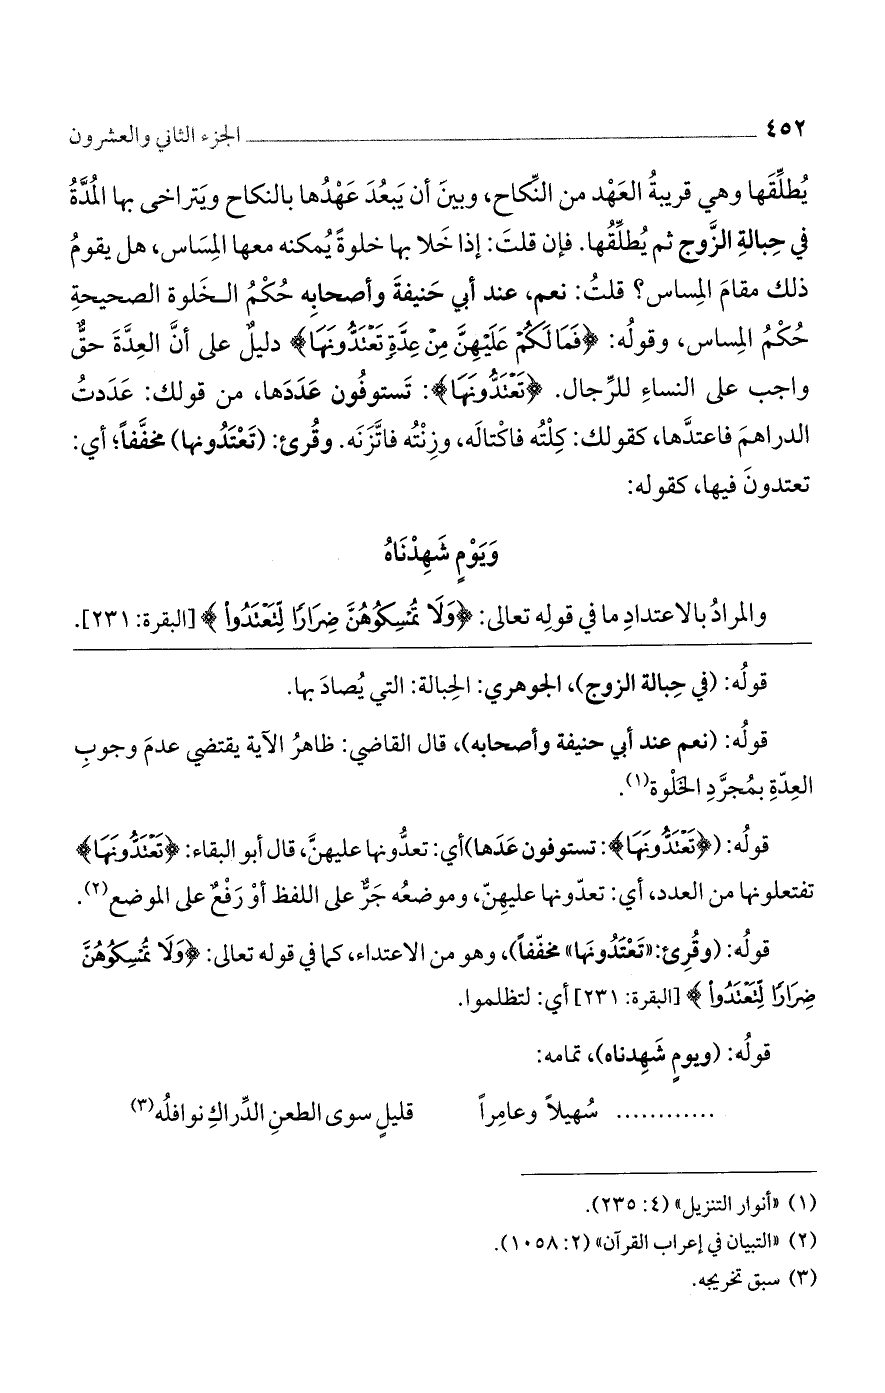 ٤٥٢ ــــــــــ الجزء الثاني والعشرون
يُطلِّقَها وهي قريبةُ العَهْد من النِّكاح، وبينَ أن يَبعُدَ عَهْدُها بالنكاح ويَتراخى بها المُدَّةُ
في حِبالةِ الزَّوج ثم يُطلِّقُها. فإن قلتَ: إذا خَلا بها خلوةً يُمكنه معها المِسَاس، هل يقومُ
ذلك مقامَ المِساس؟ قلتُ: نعم، عند أبي حَنيفةَ وأصحابِه حُكْمُ الـخَلوة الصحيحةِ
حُكْمُ المِساس، وقولُه: ﴿فَمَا لَكُمْ عَلَيْهِنَّ مِنْ عِدَّةٍ تَعْتَدُّونَهَا﴾ دليلٌ على أنَّ العِدَّةَ حقٌّ
واجب على النساءِ للرِّجال. ﴿تَعْتَدُّونَهَا﴾: تَستوفُون عَدَدَها، من قولك: عَدَدتُ
الدراهمَ فاعتدَّها، كقولك: كِلْتُه فاكْتالَه، وزِنْتُه فاتَّزَنَه. وقُرئ: (تَعْتَدُونها) مخفَّفاً؛ أي:
تعتدونَ فيها، كقوله:
وَيَوْمٍ شَهِدْنَاهُ
والمرادُ بالاعتدادِ ما في قولِه تعالى: ﴿وَلَا تُمْسِكُوهُنَّ ضِرَارًا لِّتَعْتَدُواْ﴾ [البقرة: ٢٣١].
قولُه: (في حِبالة الزوج)، الجوهري: الحِبالة: التي يُصادَ بها.
قولُه: (نعم عند أبي حنيفة وأصحابه)، قال القاضي: ظاهرُ الآية يقتضي عدمَ وجوبِ
العِدّةِ بمُجرَّدِ الخَلْوة(١).
قولُه: (﴿تَعْتَدُّونَهَا﴾: تستوفون عَدَها)أي: تعدُّونها عليهنَّ، قال أبو البقاء: ﴿تَعْتَدُّونَهَا﴾
تفتعلونها من العدد، أي: تعدّونها عليهِنّ، وموضعُه جَرٌّ على اللفظ أوْ رَفْعٌ على الموضع(٢).
قولُه: (وقُرِئ:«تَعْتَدُونَها» مخفّفاً)، وهو من الاعتداء، كما في قوله تعالى: ﴿وَلَا تُمْسِكُوهُنَّ
ضِرَارًا لِّتَعْتَدُواْ﴾ [البقرة: ٢٣١] أي: لتظلموا.
قولُه: (ويومٍ شَهِدناه)، تمامه:
............ سُهيلاً وعامِراً قليلٍ سوى الطعنِ الدِّراكِ نوافلُه(٣)
(١) «أنوار التنزيل» (٤: ٢٣٥).
(٢) «التبيان في إعراب القرآن» (٢: ١٠٥٨).
(٣) سبق تخريجه.